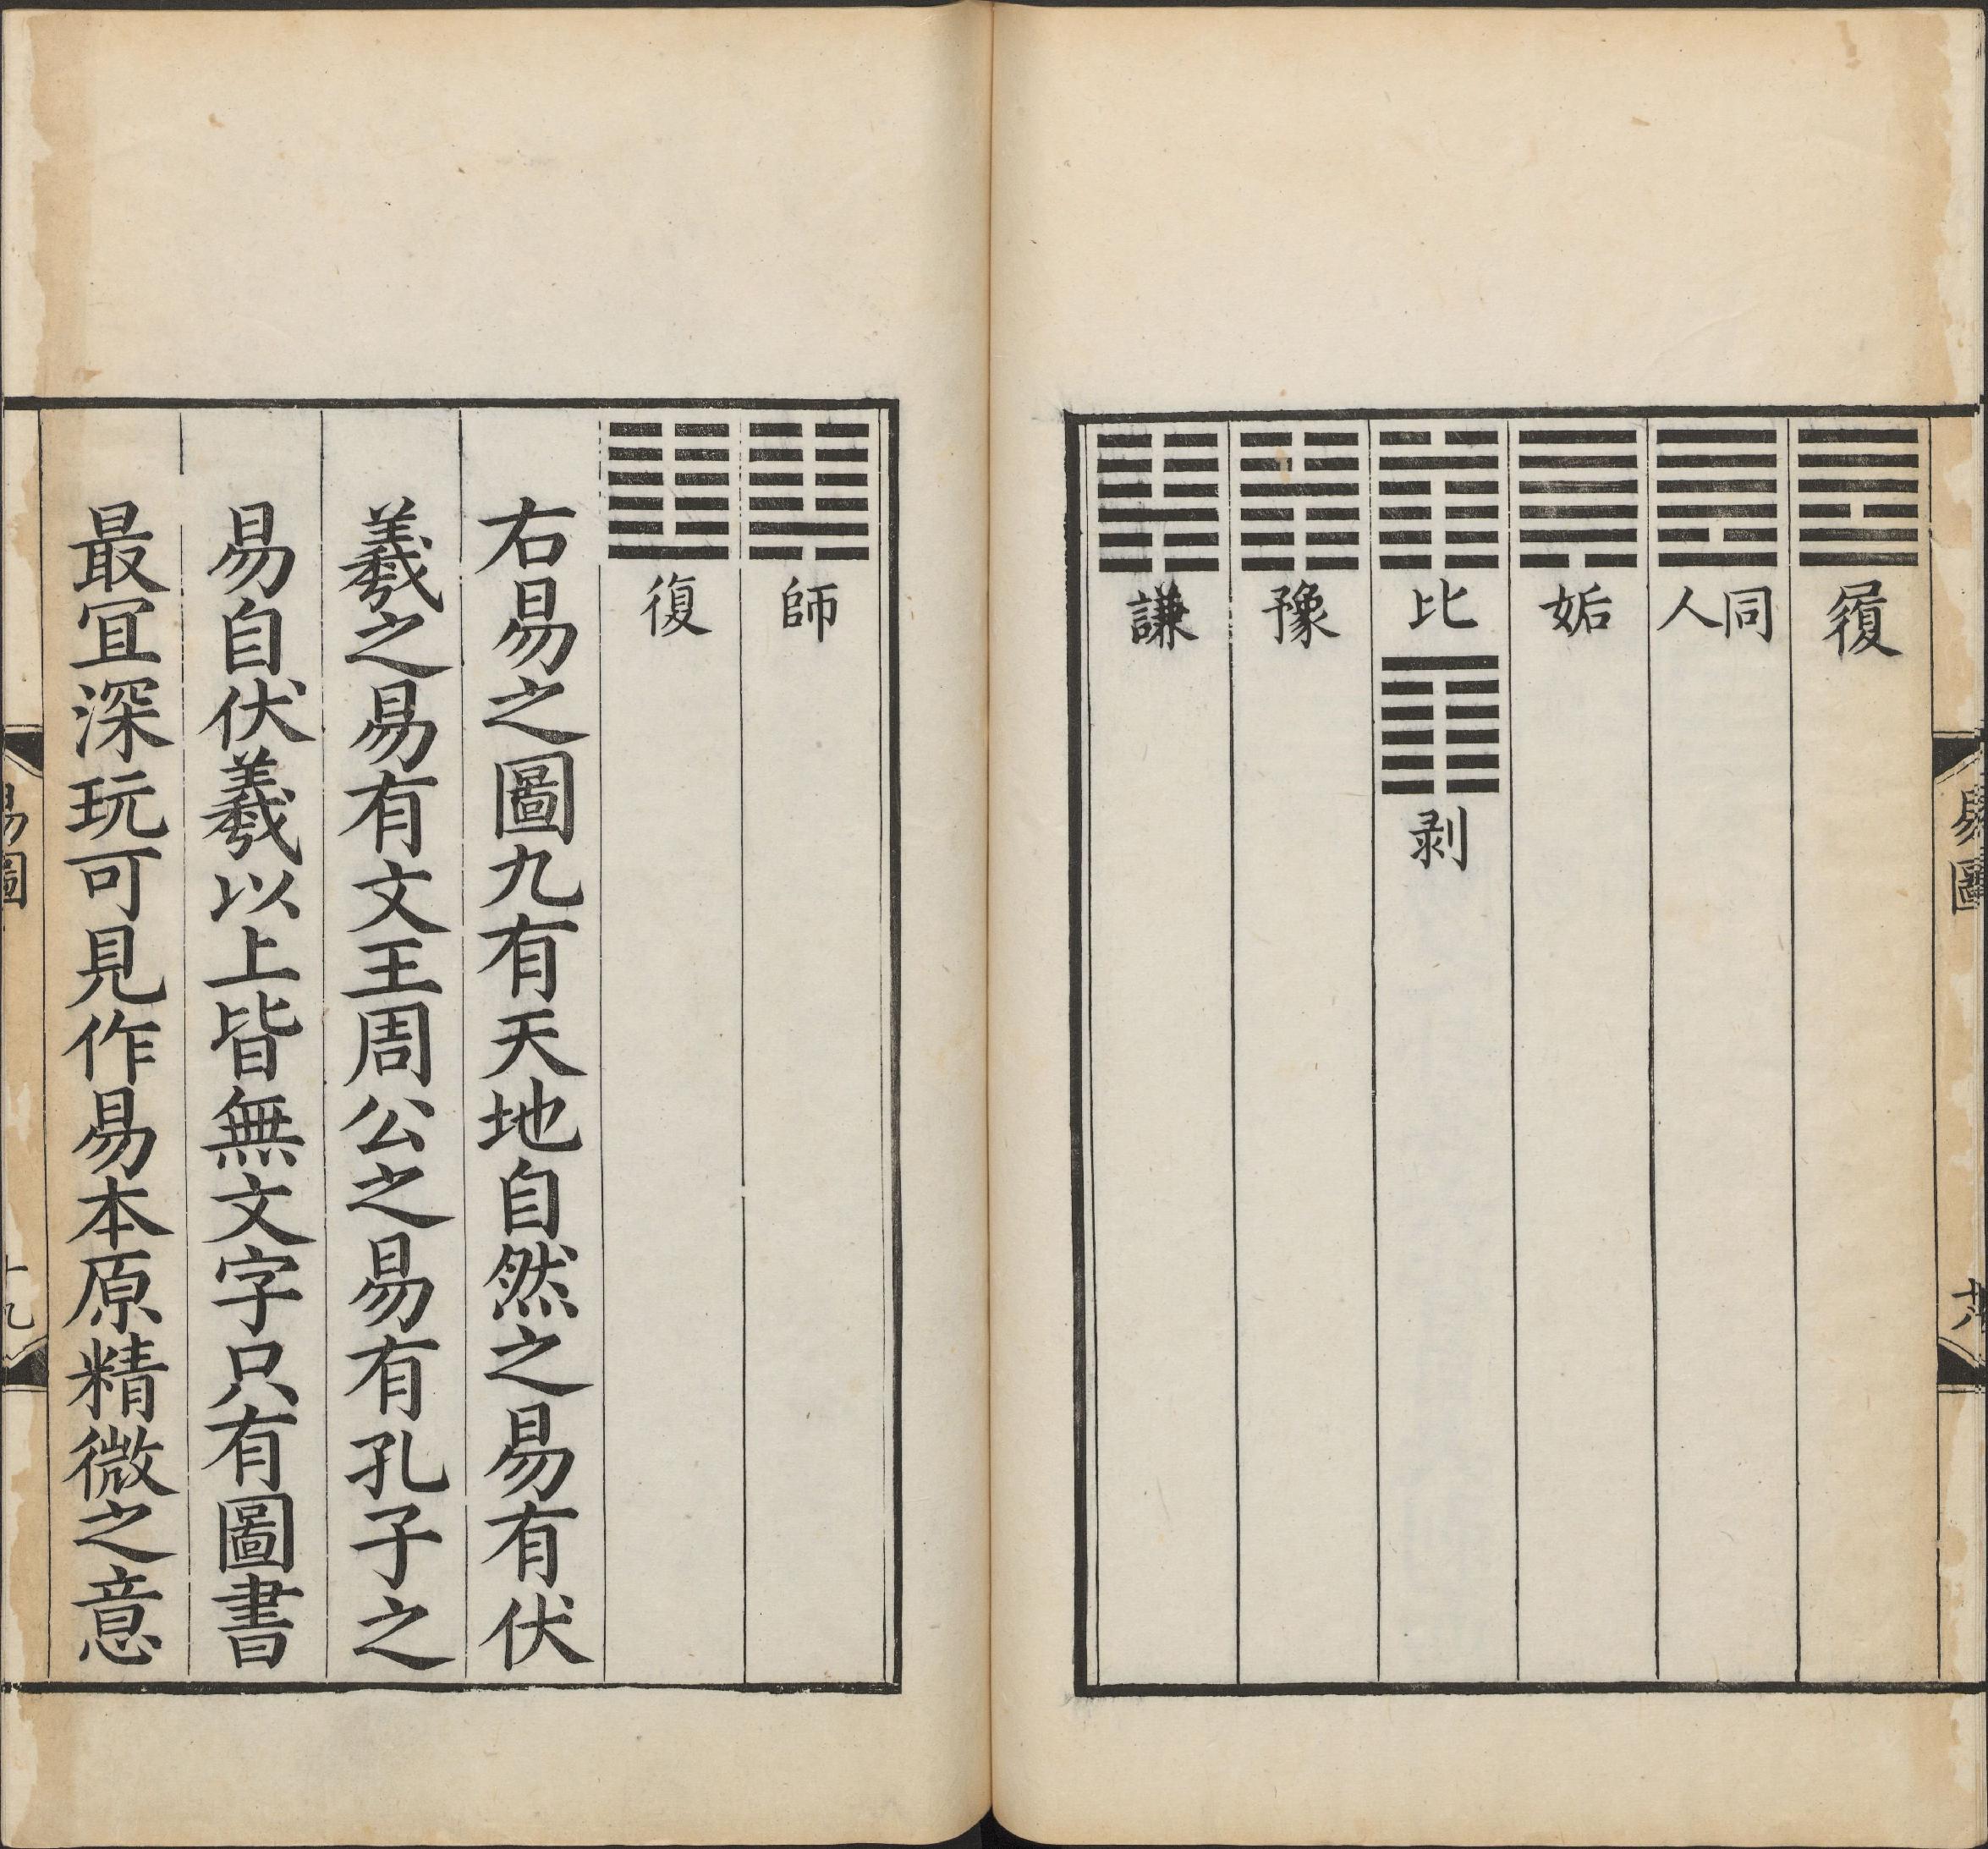 履
同人
姤
比
剥
豫
謙
師
復
右易之圖九有天地自然之易有伏
羲之易有文王周公之易有孔子之
易自伏羲以上皆無文字只有圖書
最宜深玩可見作易本原精微之意
易圖
十九